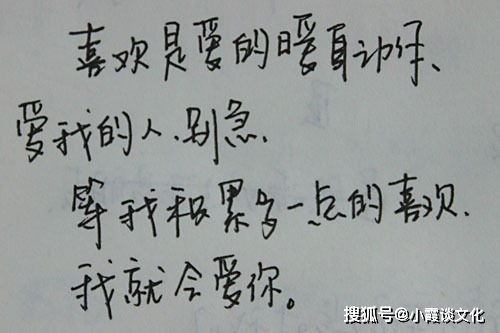 喜欢是爱的暖身动作、
爱我的人.别急.
等我积累多一点的喜欢.
我就会爱你。
搜狐号@小霞谈文化